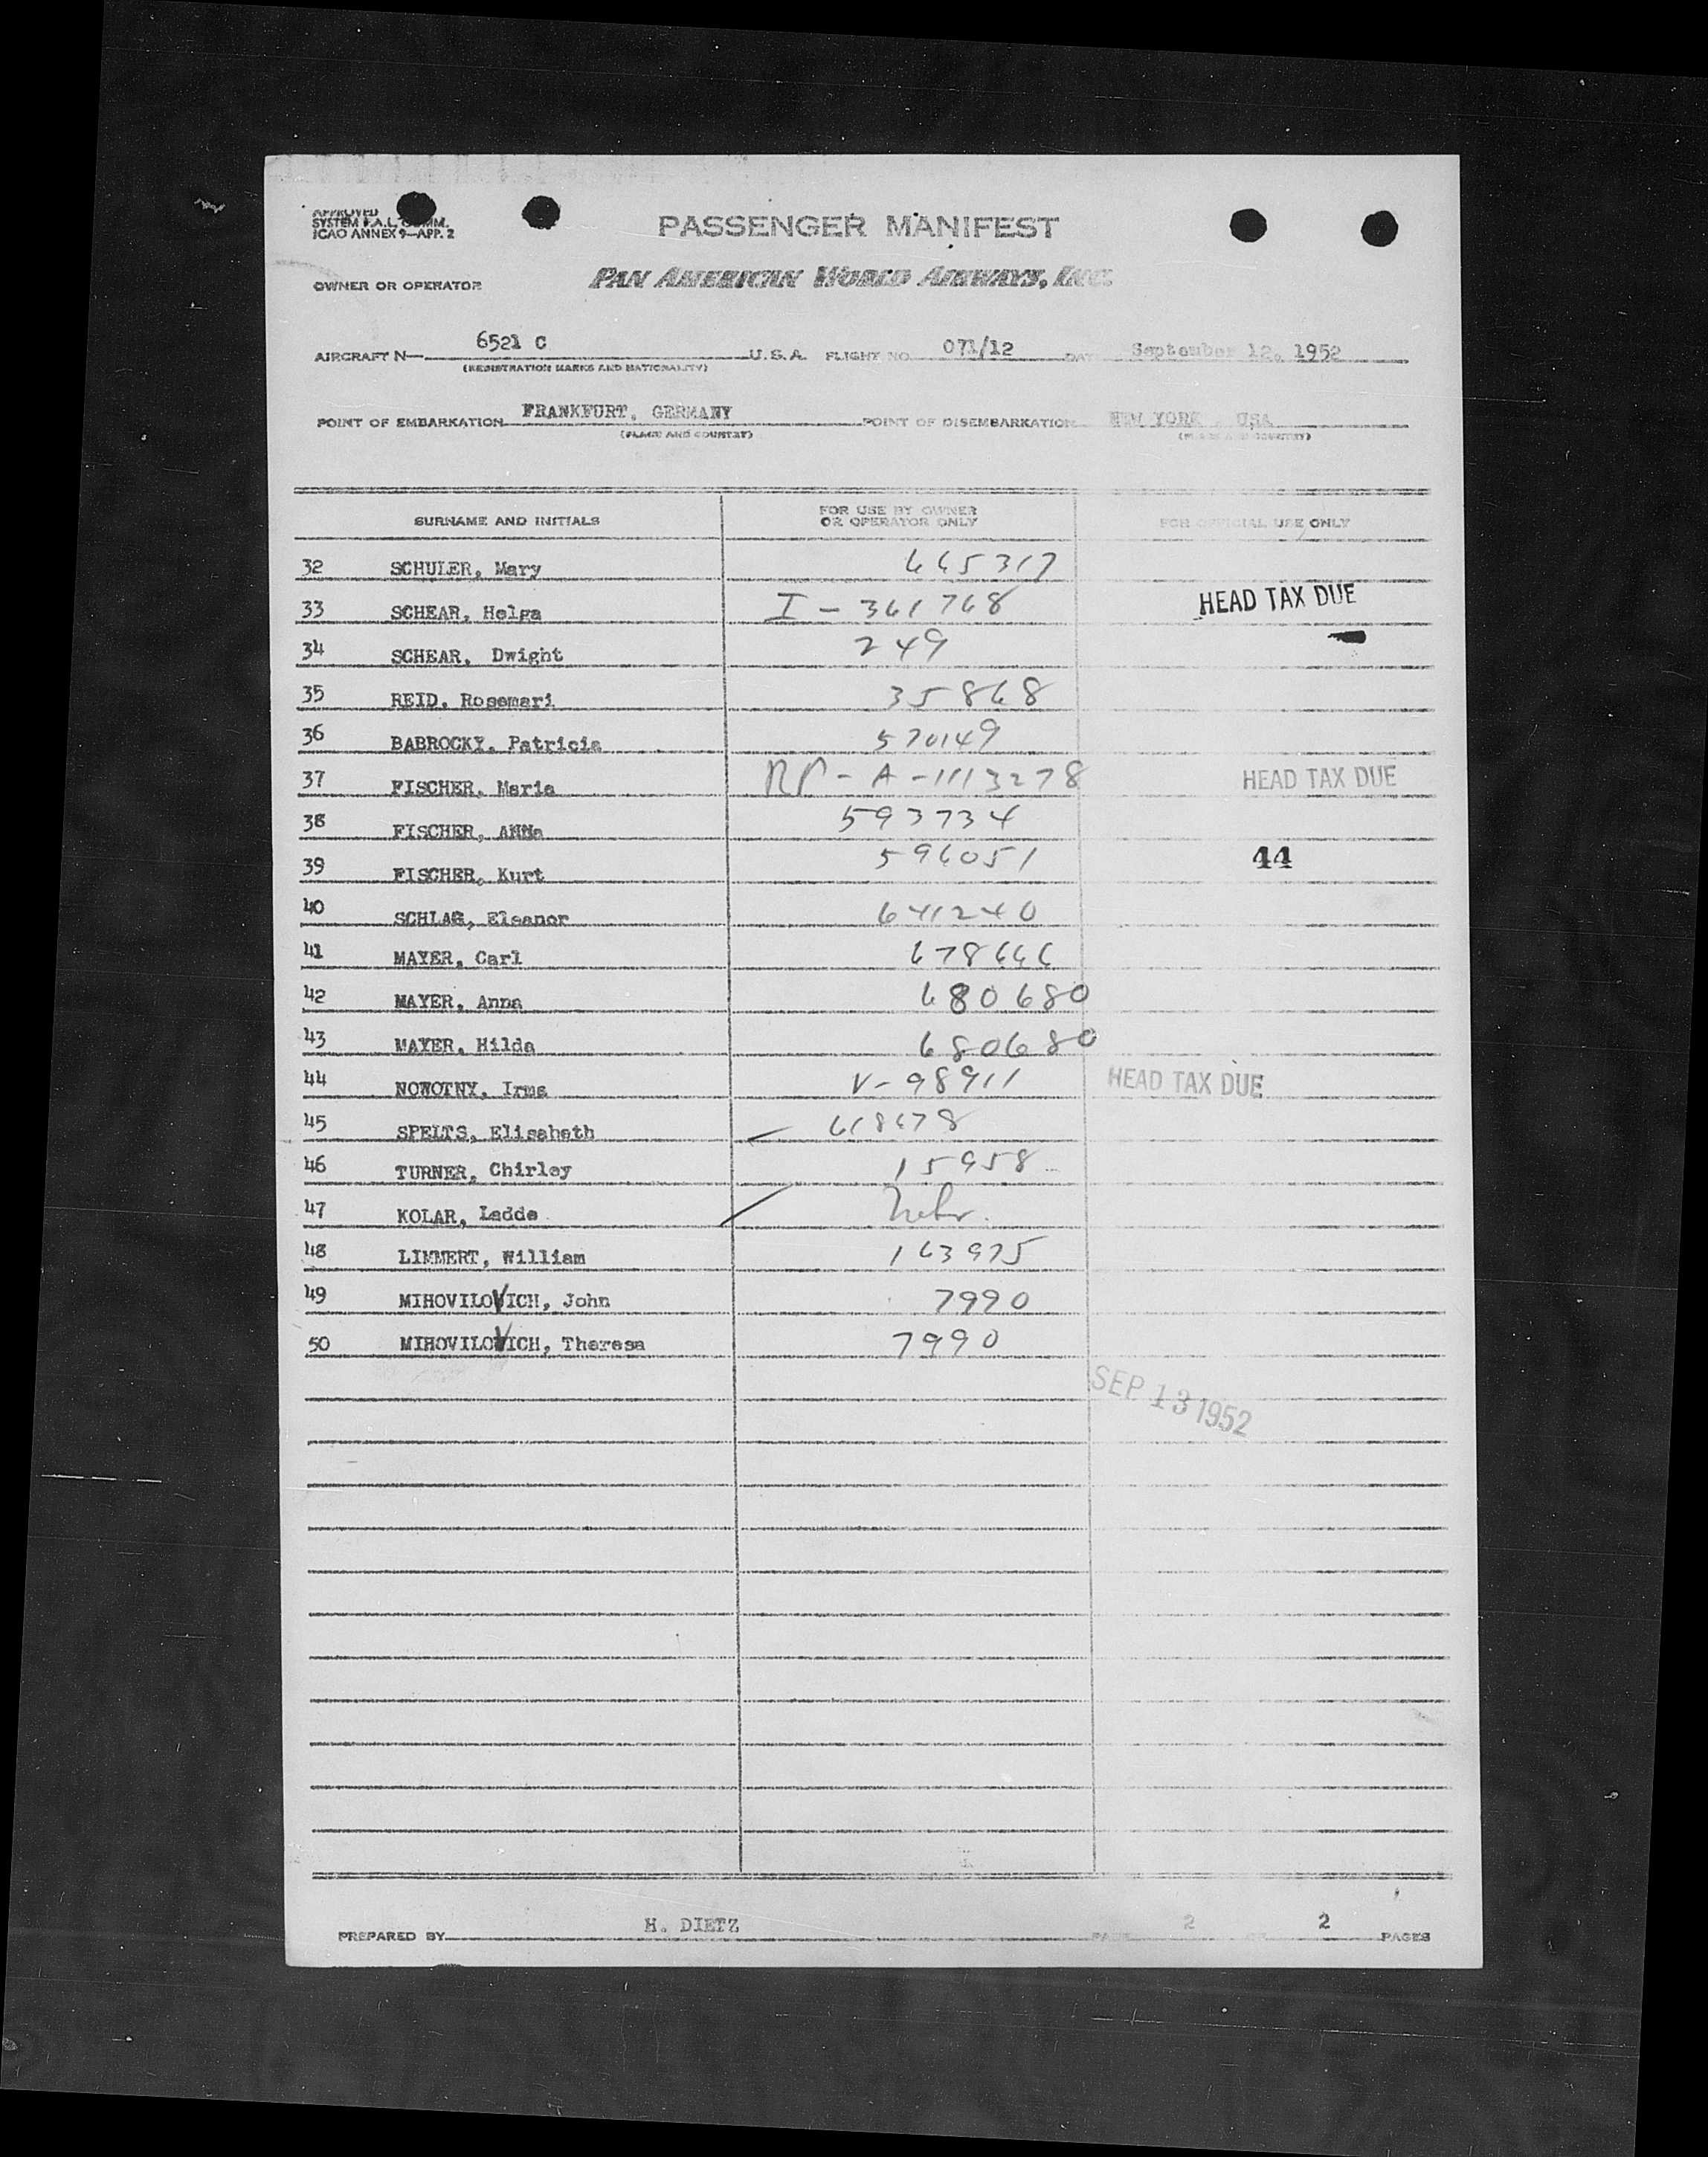 APPROVED
SYSTEM F.A.L. COMM.
ICAO ANNEX 9—APP. 2
PASSENGER MANIFEST
OWNER OR OPERATOR PAN AMERICAN WORLD AIRWAYS, INC.
AIRCRAFT N— 6521 C U.S.A. FLIGHT NO. 071/12 DATE September 12, 1952
(REGISTRATION MARKS AND NATIONALITY)
POINT OF EMBARKATION FRANKFURT, GERMANY POINT OF DISEMBARKATION NEW YORK, USA
(PLACE AND COUNTRY) (PLACE AND COUNTRY)
SURNAME AND INITIALS FOR USE BY OWNER OR OPERATOR ONLY FOR OFFICIAL USE ONLY
32 SCHULER, Mary 665317
33 SCHEAR, Helga I - 361768 HEAD TAX DUE
34 SCHEAR, Dwight 249
35 REID, Rosemari 35868
36 BABROCKY, Patricia 570149
37 FISCHER, Maria RP - A - 1113278 HEAD TAX DUE
38 FISCHER, ANNa 593734
39 FISCHER, Kurt 596051 44
40 SCHLAG, Eleanor 641240
41 MAYER, Carl 678666
42 MAYER, Anna 680680
43 MAYER, Hilda 680680
44 NOWOTNY, Irma V- 98911 HEAD TAX DUE
45 SPELTS, Elisabeth 618678
46 TURNER, Chirley 15958
47 KOLAR, Ladde
48 LIMMERT, William 163975
49 MIHOVILOVICH, John 7990
50 MIHOVILOVICH, Theresa 7990
SEP 13 1952
PREPARED BY H. DIETZ PAGE 2 OF 2 PAGES